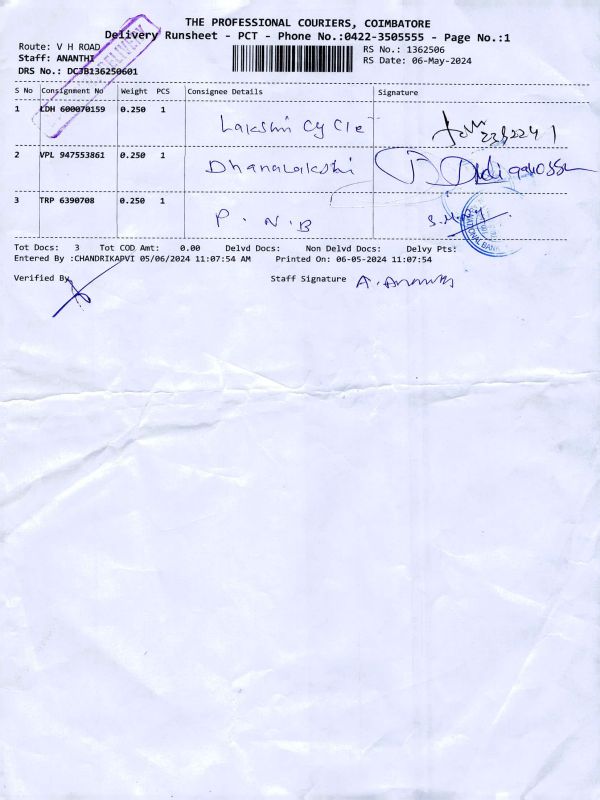 THE PROFESSIONAL COURIERS, COIMBATORE
Delivery Runsheet - PCT - Phone No.:0422-3505555 - Page No.:1
Route: V H ROAD
RS No.: 1362506
Staff: ANANTHI
RS Date: 06-May-2024
DRS No.: DCJB136250601
DELIVERY
S No Consignment No Weight PCS Consignee Details Signature
1 LDH 600070159 0.250 1 Lakshmi Cycle
2 VPL 947553861 0.250 1 Dhanalakshi
3 TRP 6390708 0.250 1 P.N.B
Tot Docs: 3 Tot COD Amt: 0.00 Delvd Docs: Non Delvd Docs: Delvy Pts:
Entered By :CHANDRIKAPVI 05/06/2024 11:07:54 AM Printed On: 06-05-2024 11:07:54
Verified By
Staff Signature A. Ananthi